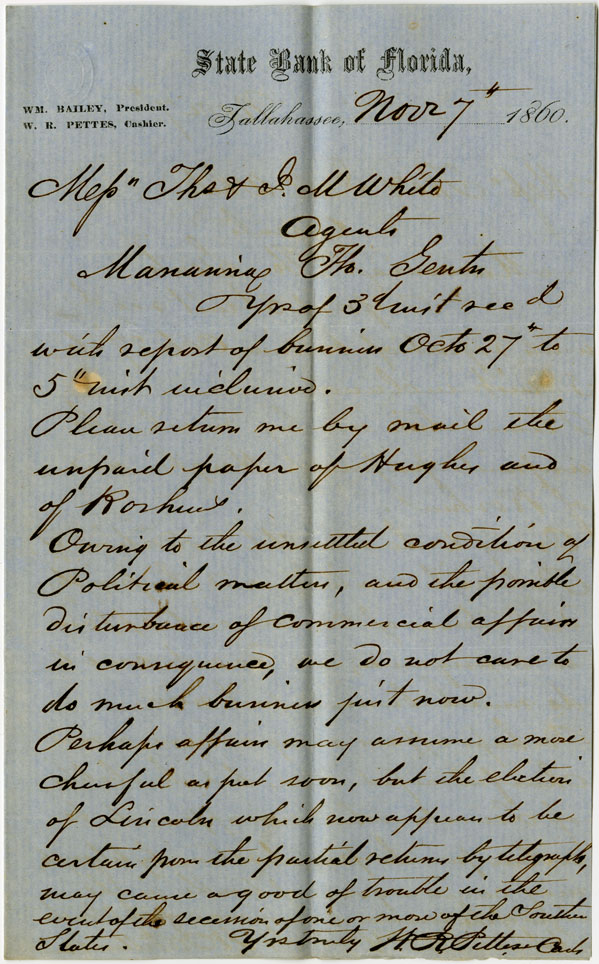 State Bank of Florida,
WM. BAILEY, President.
W. R. PETTES, Cashier.
Tallahassee, Novr 7" 1860.
Messrs Thos & J. M White
Agents
Marianna Fla. Gents
Yrs of 3d inst recd
with report of business Octo 27" to
5" inst inclusive.
Please return me by mail the
unpaid paper of Hughes and
of
Owing to the unsettled condition of
Political matters, and the possible
disturbance of commercial affairs
in consequence, we do not care to
do much business just now.
Perhaps affairs may assume a more
cheerful aspect soon, but the election
of Lincoln which now appears to be
certain from the partial returns by telegraph,
may cause a good of trouble in the
event of the secession of one or more of the Southern
States. Yrs truly W. R. Pettes Cash